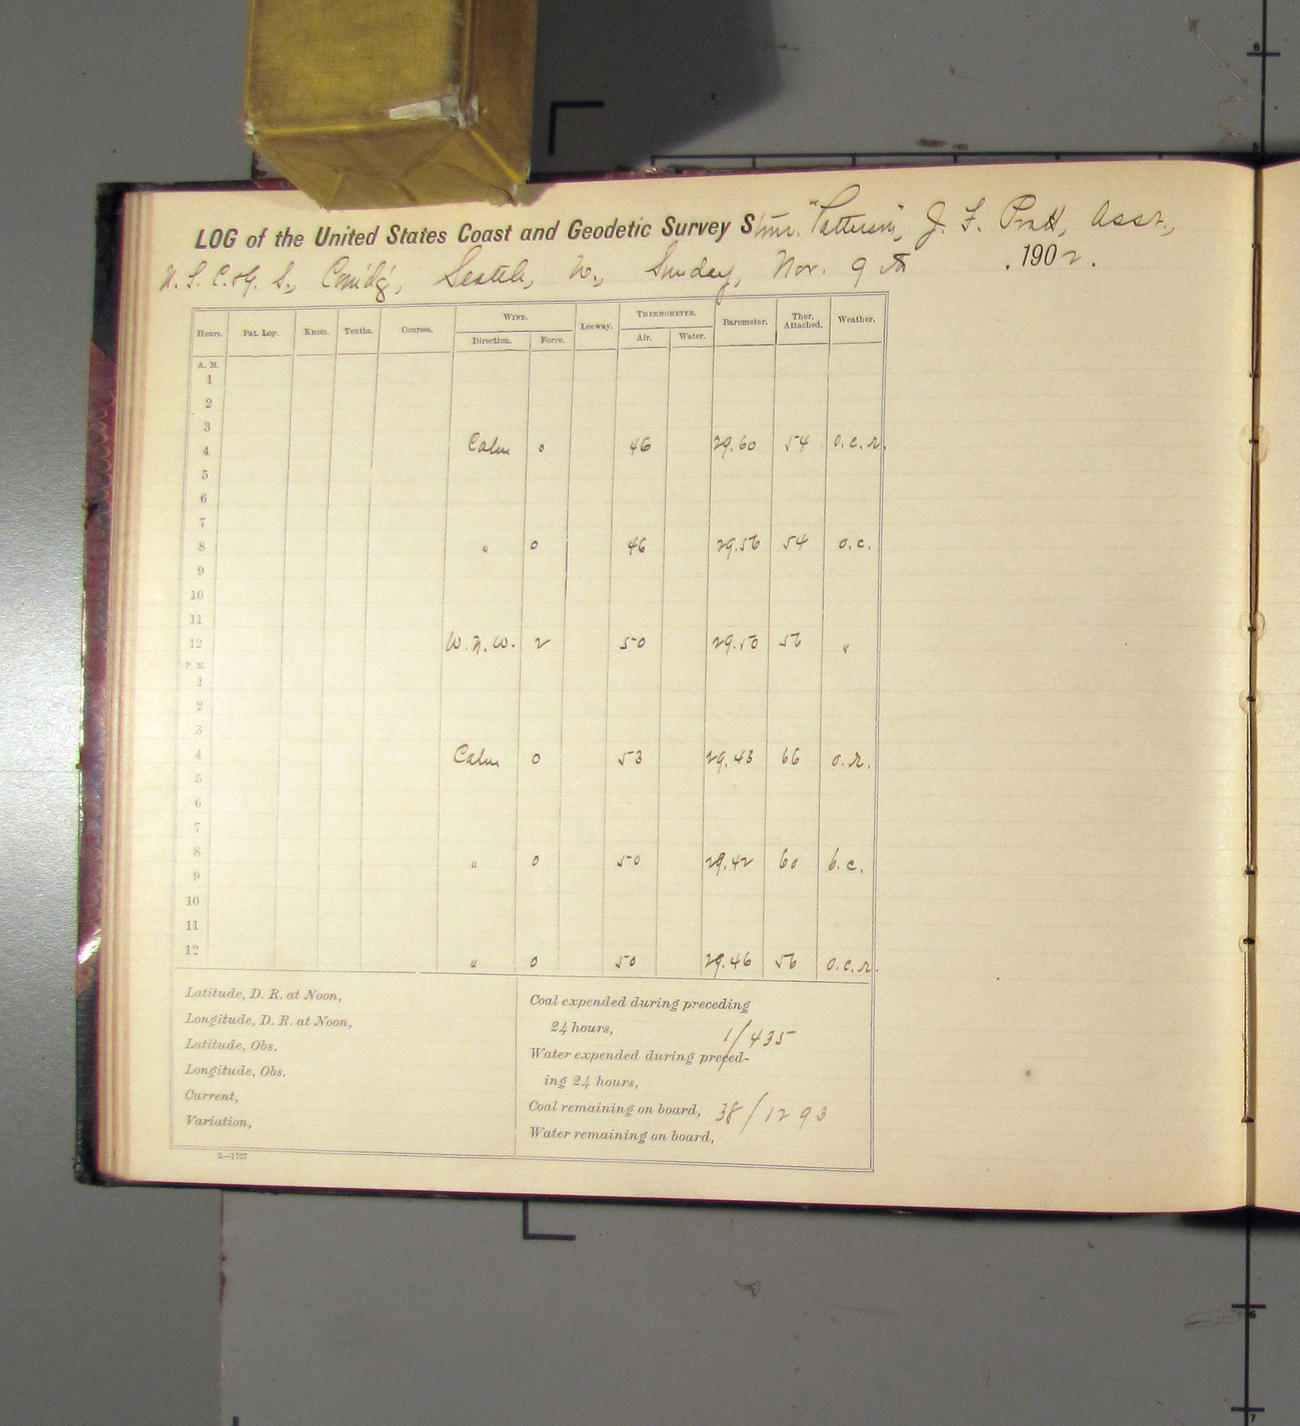 LOG of the United States Coast and Geodetic Survey Stmr. "Patterson", J. F. Pratt, Asst.,
U. S. C. & G. S., Com'd'g, Seattle, W., Sunday, Nov. 9th, 1902.
Hours. Pat. Log. Knots. Tenths. Courses. WIND. Direction. Force. Leeway. THERMOMETER. Air. Water. Barometer. Ther. Attached. Weather.
A. M.
1
2
3
4 Calm 0 46 29.60 54 o.c.r.
5
6
7
8 " 0 46 29.56 54 o.c.
9
10
11
12 W.N.W. 2 50 29.50 56 "
P. M.
1
2
3
4 Calm 0 53 29.43 66 o.r.
5
6
7
8 " 0 50 29.42 60 b.c.
9
10
11
12 " 0 50 29.46 56 o.c.r.
Latitude, D. R. at Noon,
Longitude, D. R. at Noon,
Latitude, Obs.
Longitude, Obs.
Current,
Variation,
Coal expended during preceding
24 hours, 1/435
Water expended during preced-
ing 24 hours,
Coal remaining on board, 38/1293
Water remaining on board,
2—1727
5
6
6
7